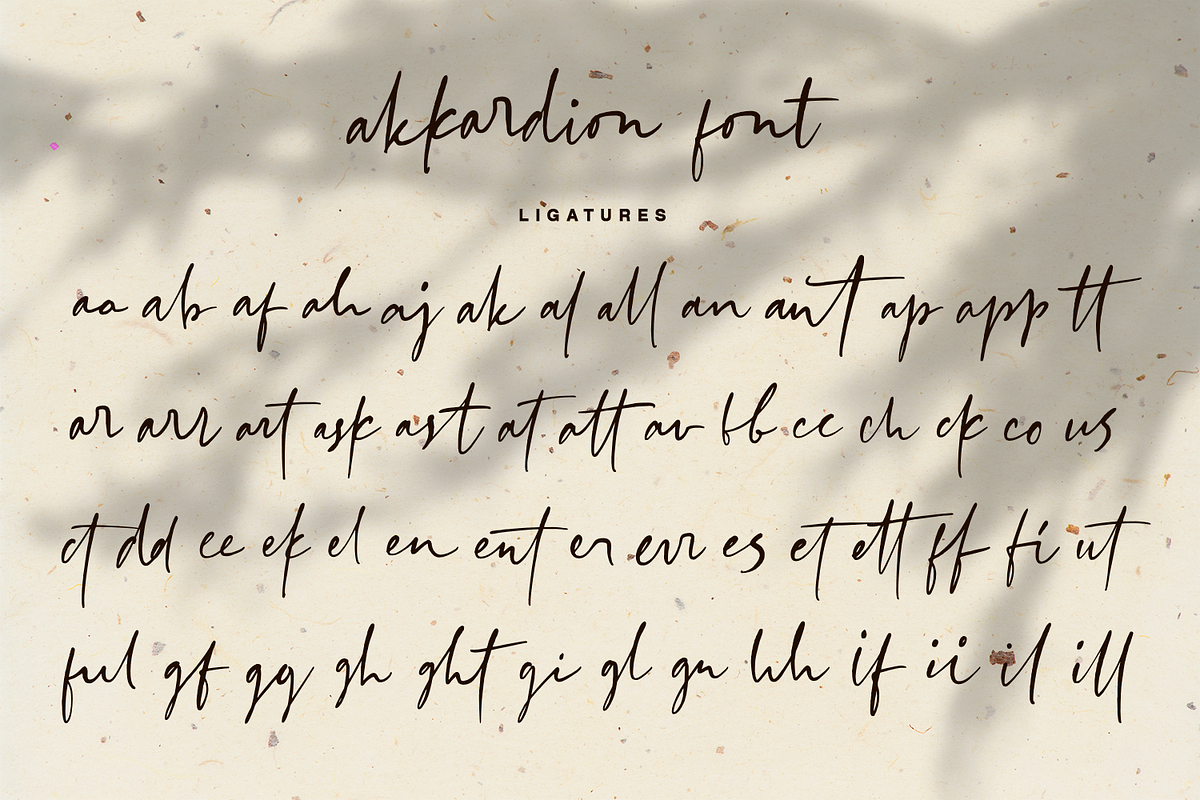 akkardion font
LIGATURES
aa ab af ah aj ak al all an ant ap app tt
ar arr art ask ast at att av bb cc ch ck co us
ct dd ee ek el en ent er err es et ett ff fi ut
ful gf gg gh ght gi gl gn hh if ii il ill